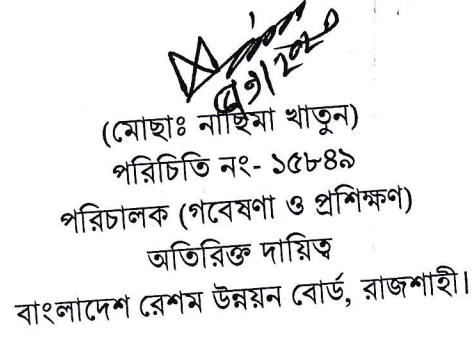 (মোছাঃ নাছিমা খাতুন)
পরিচিতি নং- ১৫৮৪৯
পরিচালক (গবেষণা ও প্রশিক্ষণ)
অতিরিক্ত দায়িত্ব
বাংলাদেশ রেশম উন্নয়ন বোর্ড, রাজশাহী।